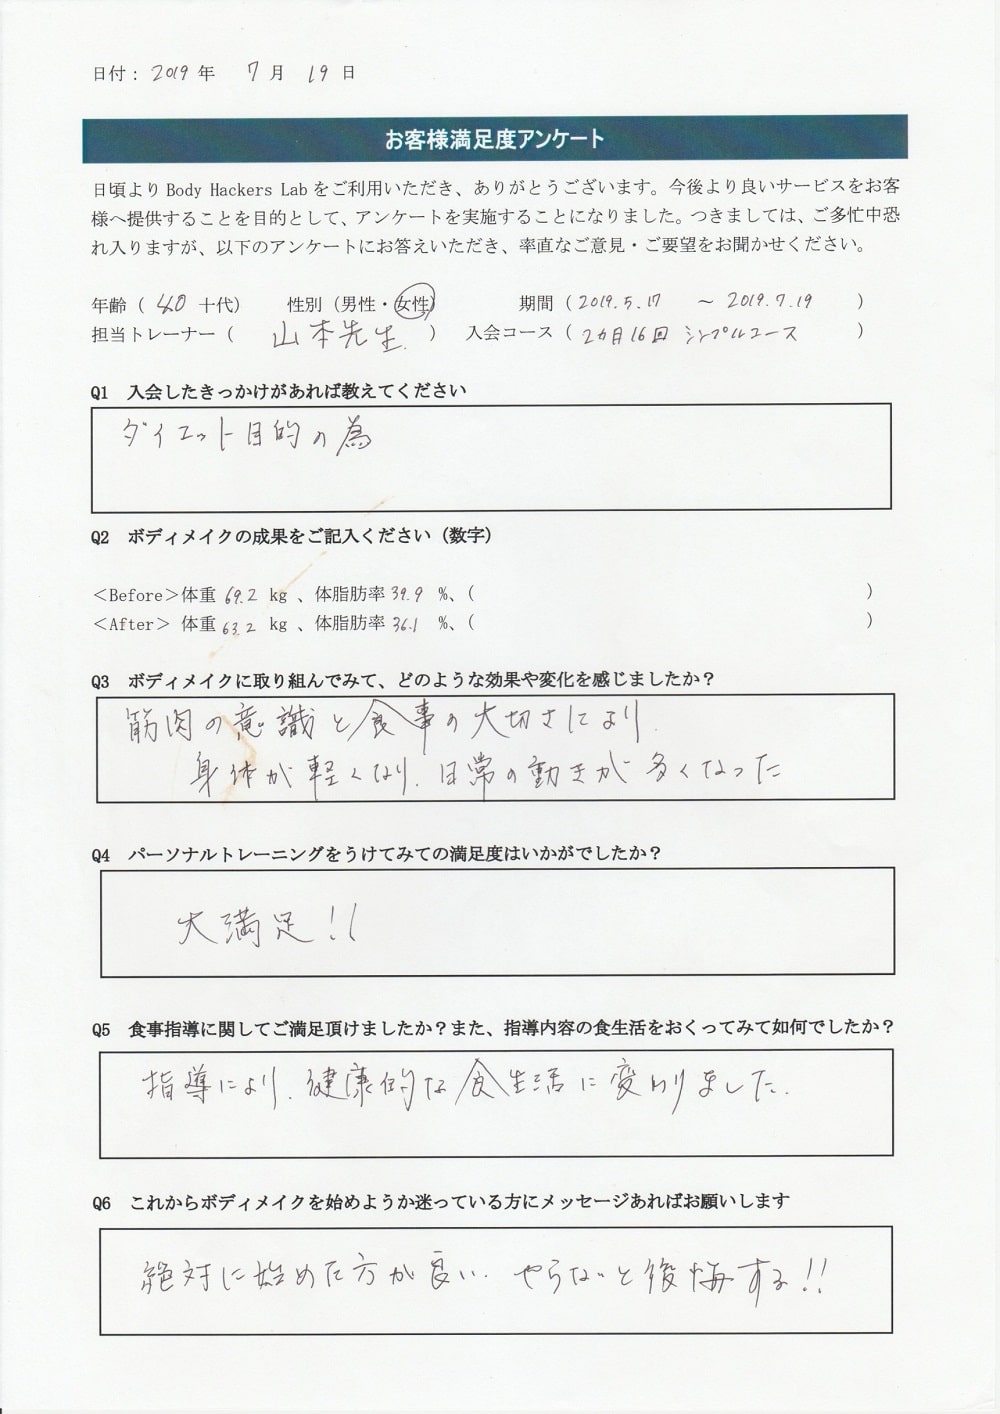 日付：2019年 7月 19日
お客様満足度アンケート
日頃より Body Hackers Lab をご利用いただき、ありがとうございます。今後より良いサービスをお客
様へ提供することを目的として、アンケートを実施することになりました。つきましては、ご多忙中恐
れ入りますが、以下のアンケートにお答えいただき、率直なご意見・ご要望をお聞かせください。
年齢（ 40 十代） 性別（男性・女性） 期間（ 2019.5.17 ～ 2019.7.19 ）
担当トレーナー（ 山本先生. ） 入会コース（ 2カ月16回 シンプルコース ）
Q1 入会したきっかけがあれば教えてください
ダイエット目的の為
Q2 ボディメイクの成果をご記入ください（数字）
＜Before＞体重 69.2 kg 、体脂肪率 39.9 %、（ ）
＜After＞ 体重 63.2 kg 、体脂肪率 36.1 %、（ ）
Q3 ボディメイクに取り組んでみて、どのような効果や変化を感じましたか？
筋肉の意識と食事の大切さにより
身体が軽くなり. 日常の動きが多くなった
Q4 パーソナルトレーニングをうけてみての満足度はいかがでしたか？
大満足!!
Q5 食事指導に関してご満足頂けましたか？また、指導内容の食生活をおくってみて如何でしたか？
指導により. 健康的な食生活に変わりました.
Q6 これからボディメイクを始めようか迷っている方にメッセージあればお願いします
絶対に始めた方が良い. やらないと後悔する!!